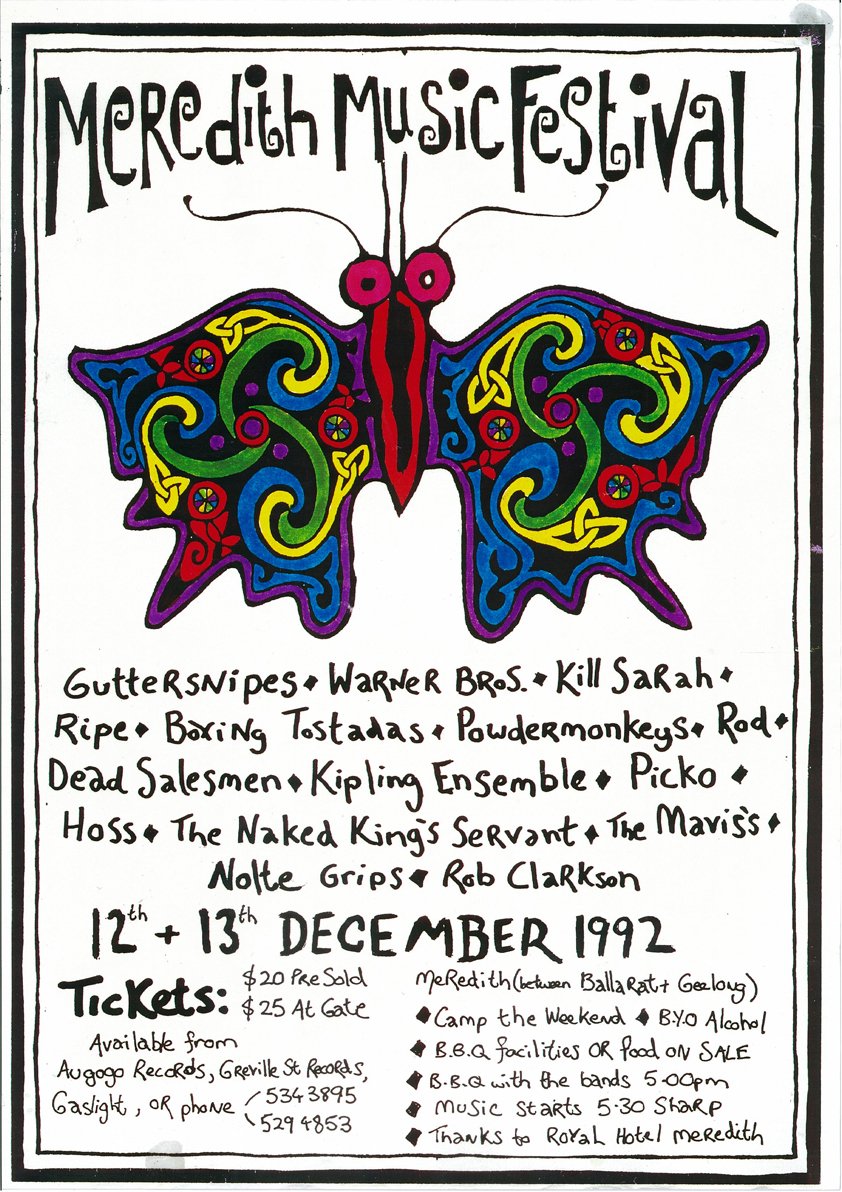 Meredith Music Festival
Guttersnipes ♦ Warner Bros. ♦ Kill Sarah ♦
Ripe ♦ Boxing Tostadas ♦ Powdermonkeys ♦ Rod ♦
Dead Salesmen ♦ Kipling Ensemble ♦ Picko ♦
Hoss ♦ The Naked King's Servant ♦ The Mavis's ♦
Nolte Grips ♦ Rob Clarkson
12th + 13th DECEMBER 1992
Tickets: $20 PreSold
$25 At Gate
Available from
Augogo Records, Greville St Records,
Gaslight, OR phone 534 3895
529 4853
Meredith (between Ballarat + Geelong)
♦ Camp the Weekend ♦ B.Y.O Alcohol
♦ B.B.Q facilities OR Food ON SALE
♦ B.B.Q with the bands 5-00pm
♦ Music starts 5:30 Sharp
♦ Thanks to Royal Hotel Meredith